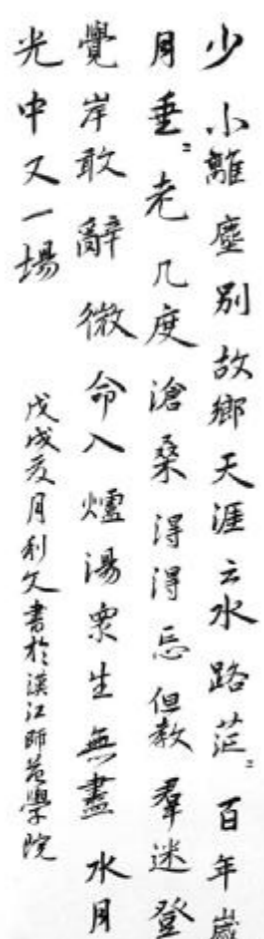 少小離塵別故鄉天涯云水路茫〻百年歲
月垂〻老几度滄桑淂淂忘但教羣迷登
覺岸敢辭微命入爐湯衆生無盡水月
光中又一場
戊戌夏月利文書於漢江師范學院